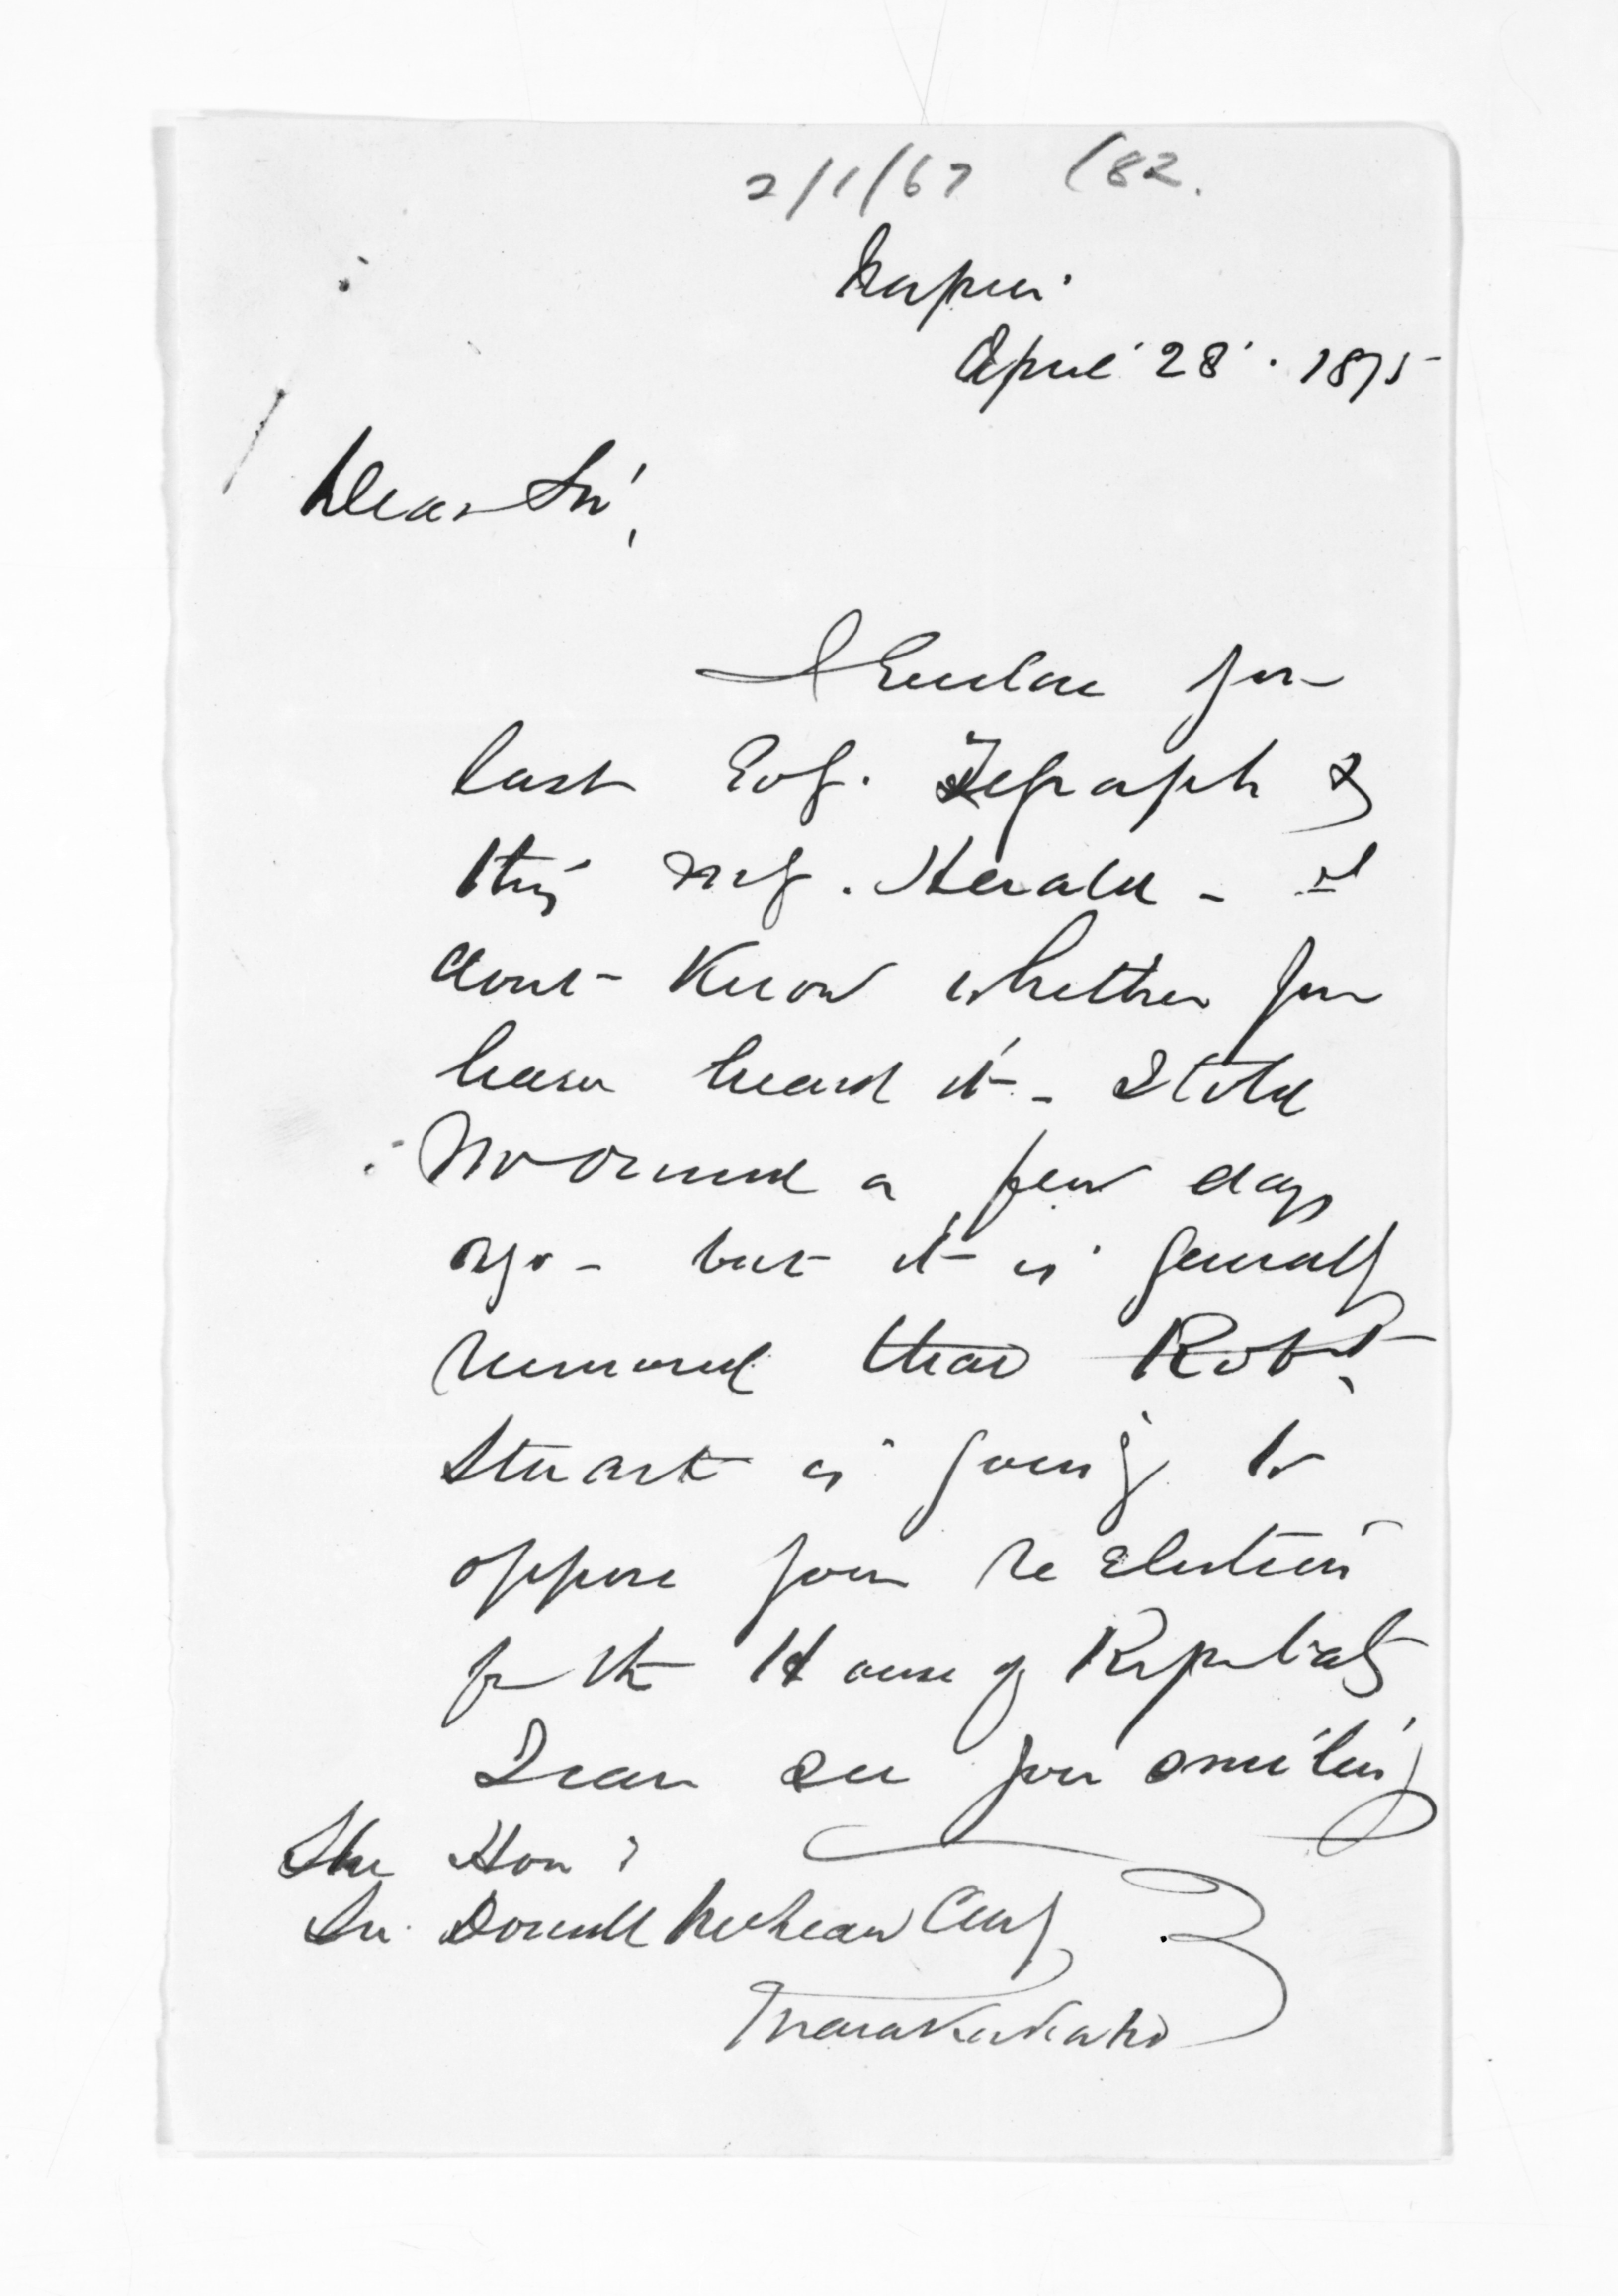 2/1/67 (82.
Napier.
April 28. 1875
Dear Sir,
I Enclose you
last Evg. Telegraph &
this Mg. Herald - I
dont Know whether you
have heard it - I told
Mr Ormond a few days
ago - but it is generally
rumored that Robt.
Stuart is going to
oppose your re Election
for the House of
I can see you smiling
The Hon:
Sir Donald McLean
Maraekakaho